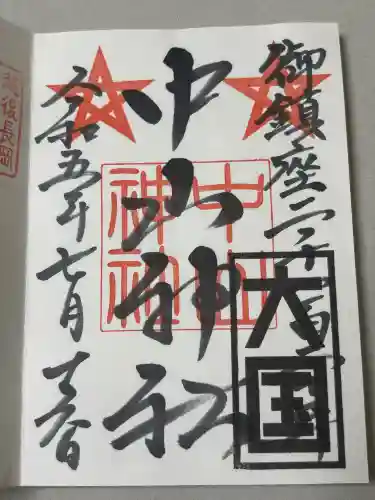 御鎮座二千
中山神社
中山
神社
大国
令和五年七月